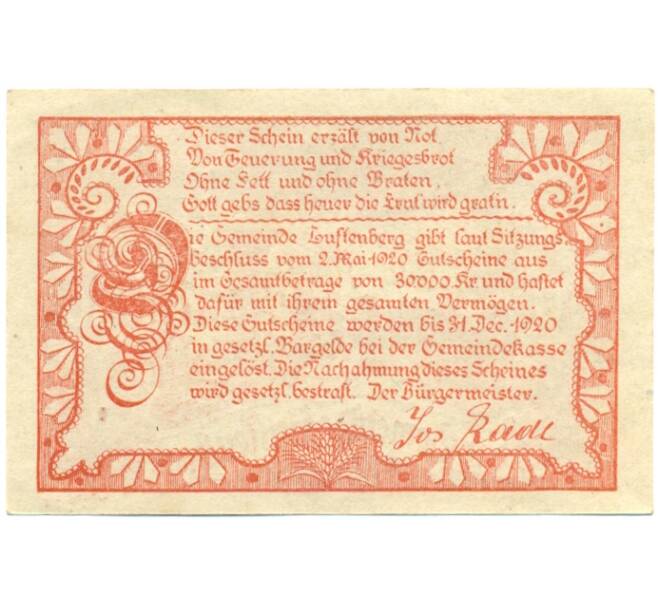 Dieser Schein erzält von Not
Von Teuerung und Kriegesbrot
Ohne Fett und ohne Braten
Gott gebs dass heuer die Ernt wird gratn.
Die Gemeinde Luftenberg gibt laut Sitzungs-
beschluss vom 2. Mai 1920 Gutscheine aus
im Gesamtbetrage von 30000 Kr. und haftet
dafür mit ihrem gesamten Vermögen.
Diese Gutscheine werden bis 31. Dec. 1920
in gesetzl. Bargelde bei der Gemeindekasse
eingelöst. Die Nachahmung dieses Scheines
wird gesetzl. bestraft. Der Bürgermeister.
Jos